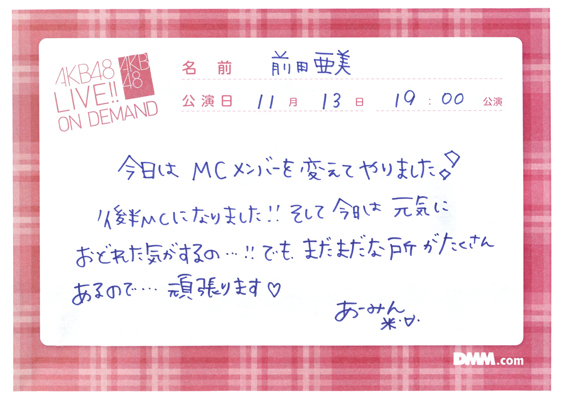 AKB48
LIVE!!
ON DEMAND
AKB
48
名前 前田亜美
公演日 11月 13日 19:00 公演
今日は MCメンバーを変えてやりました!
後半MCになりました!! そして今日は 元気に
おどれた気がするの…!! でも、まだまだな所がたくさん
あるので…. 頑張ります♡
あーみん
DMM.com